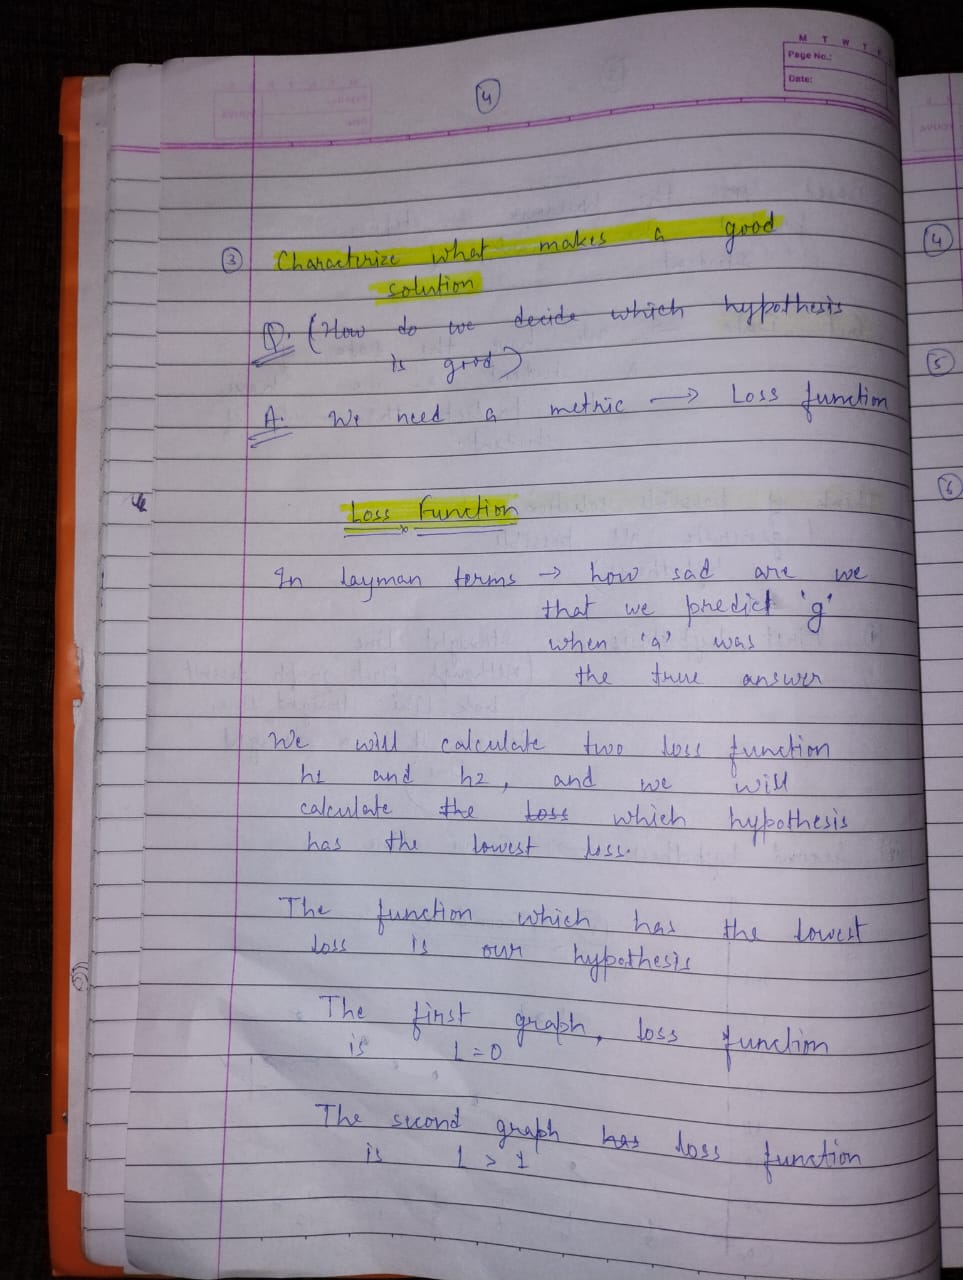 M T W T F
Page No.:
Date:
4
3 Characterize what makes a good
solution
Q. (How do we decide which hypothesis
is good)
A. We need a metric → Loss function
Loss Function
In layman terms → how sad are we
that we predict 'g'
when 'a' was
the true answer
We will calculate two loss function
h1 and h2, and we will
calculate the loss which hypothesis
has the lowest loss.
The function which has the lowest
loss is our hypothesis
The first graph, loss function
is L=0
The second graph has loss function
is L > 1
4
5
6